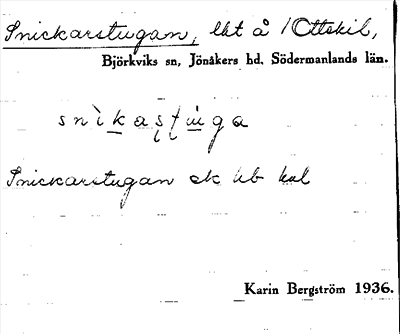 Snickarstugan, lht å /Ottekil,
Björkviks sn, Jönåkers hd. Södermanlands län.
snìkastuga
Snickarstugan ek hb kal
Karin Bergström 1936.